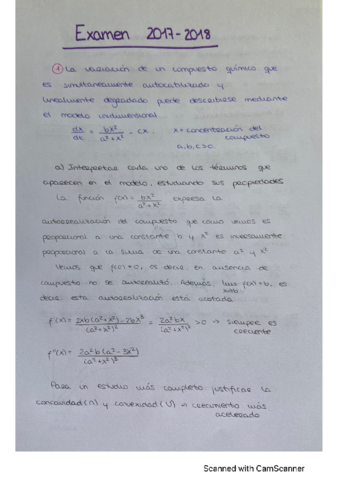 Examen 2017-2018
① La variación de un compuesto químico que
es simultáneamente autocatalizado y
linealmente degradado puede describirse mediante
el modelo unidimensional
dx/dt = bx²/(a²+x²) - cx. x = concentración del
compuesto
a,b,c>0.
a) Interpretar cada uno de los términos que
aparecen en el modelo, estudiando sus propiedades
La función f(x) = bx²/(a²+x²) expresa la
autorrealización de compuesto que como vemos es
proporcional a una constante b y x² es inversamente
proporcional a la suma de una constante a² y x².
Vemos que f(0)=0, es decir, en ausencia de
compuesto no se autorrealiza. Además, lim f(x) = b, es
x→∞
decir esta autorrealización está acotada.
f'(x) = (2xb(a²+x²) - 2bx³)/(a²+x²)² = 2a²bx/(a²+x²)² >0 → siempre es
creciente
f''(x) = 2a²b(a²-3x²)/(a²+x²)³
Para un estudio más completo justificar la
concavidad (∩) y convexidad (∪) → crecimiento más
acelerado
Scanned with CamScanner